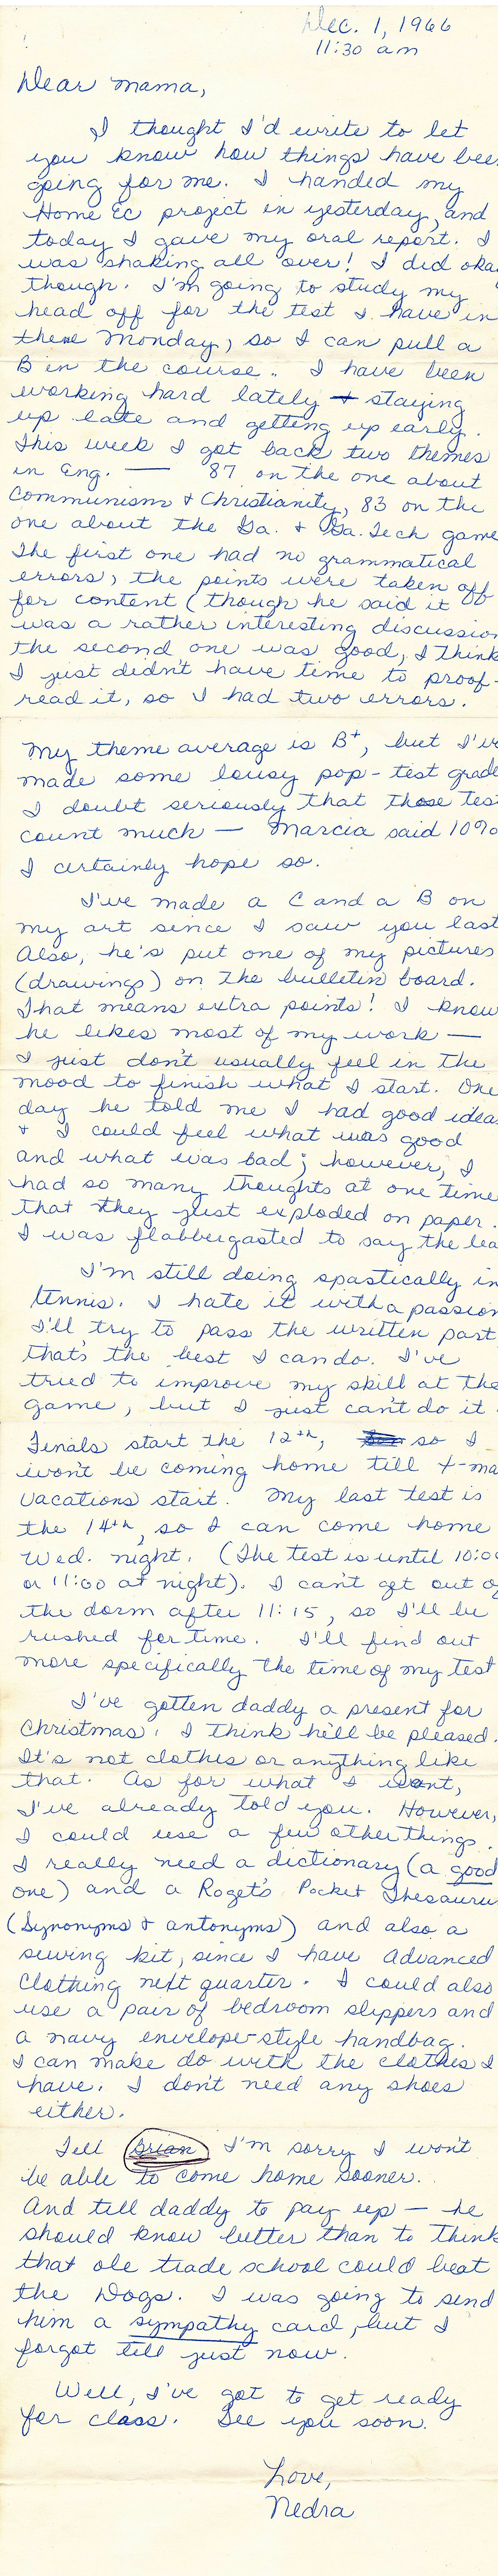 Dec. 1, 1966
11:30 am
Dear mama,
I thought I'd write to let
you know how things have bee
going for me. I handed my
Home Ec project in yesterday, and
today I gave my oral report. I
was shaking all over! I did oka
though. I'm going to study my
head off for the test I have in
there Monday, so I can pull a
B in the course. I have been
working hard lately + staying
up late and getting up early.
This week I got back two themes
in Eng. — 87 on the one about
Communism + Christianity, 83 on the
one about the Ga. + Ga. Tech game
The first one had no grammatical
errors, the points were taken off
for content (though he said it
was a rather interesting discussion
the second one was good, I think
I just didn't have time to proof-
read it, so I had two errors.
My theme average is B+, but I've
made some lousy pop-test grade
I doubt seriously that those tes
count much — Marcia said 10%
I certainly hope so.
I've made a C and a B on
my art since I saw you last
Also, he's put one of my pictures
(drawings) on the bulletin board.
That means extra points! I know
he likes most of my work —
I just don't usually feel in the
mood to finish what I start. One
day he told me I had good idea
+ I could feel what was good
and what was bad; however, I
had so many thoughts at one time
that they just exploded on paper.
I was flabbergasted to say the lea
I'm still doing spastically in
tennis. I hate it with a passion
I'll try to pass the written part
that's the best I can do. I've
tried to improve my skill at the
game, but I just can't do it
Finals start the 12th, so I
won't be coming home till X-ma
vacations start. My last test is
the 14th, so I can come home
Wed. night. (The test is until 10:00
or 11:00 at night). I can't get out o
the dorm after 11:15, so I'll be
rushed for time. I'll find out
more specifically the time of my test
I've gotten daddy a present for
Christmas. I think he'll be pleased.
It's not clothes or anything like
that. As for what I want,
I've already told you. However,
I could use a few other things.
I really need a dictionary (a good
one) and a Roget's Pocket Thesauru
(Synonyms + antonyms) and also a
sewing kit, since I have Advanced
Clothing next quarter. I could also
use a pair of bedroom slippers and
a navy envelope-style handbag.
I can make do with the clothes I
have. I don't need any shoes
either.
Tell Brian I'm sorry I won't
be able to come home sooner.
And tell daddy to pay up — he
should know better than to think
that ole trade school could beat
the Dogs. I was going to send
him a sympathy card, but I
forgot till just now.
Well, I've got to get ready
for class. See you soon.
Love,
Nedra